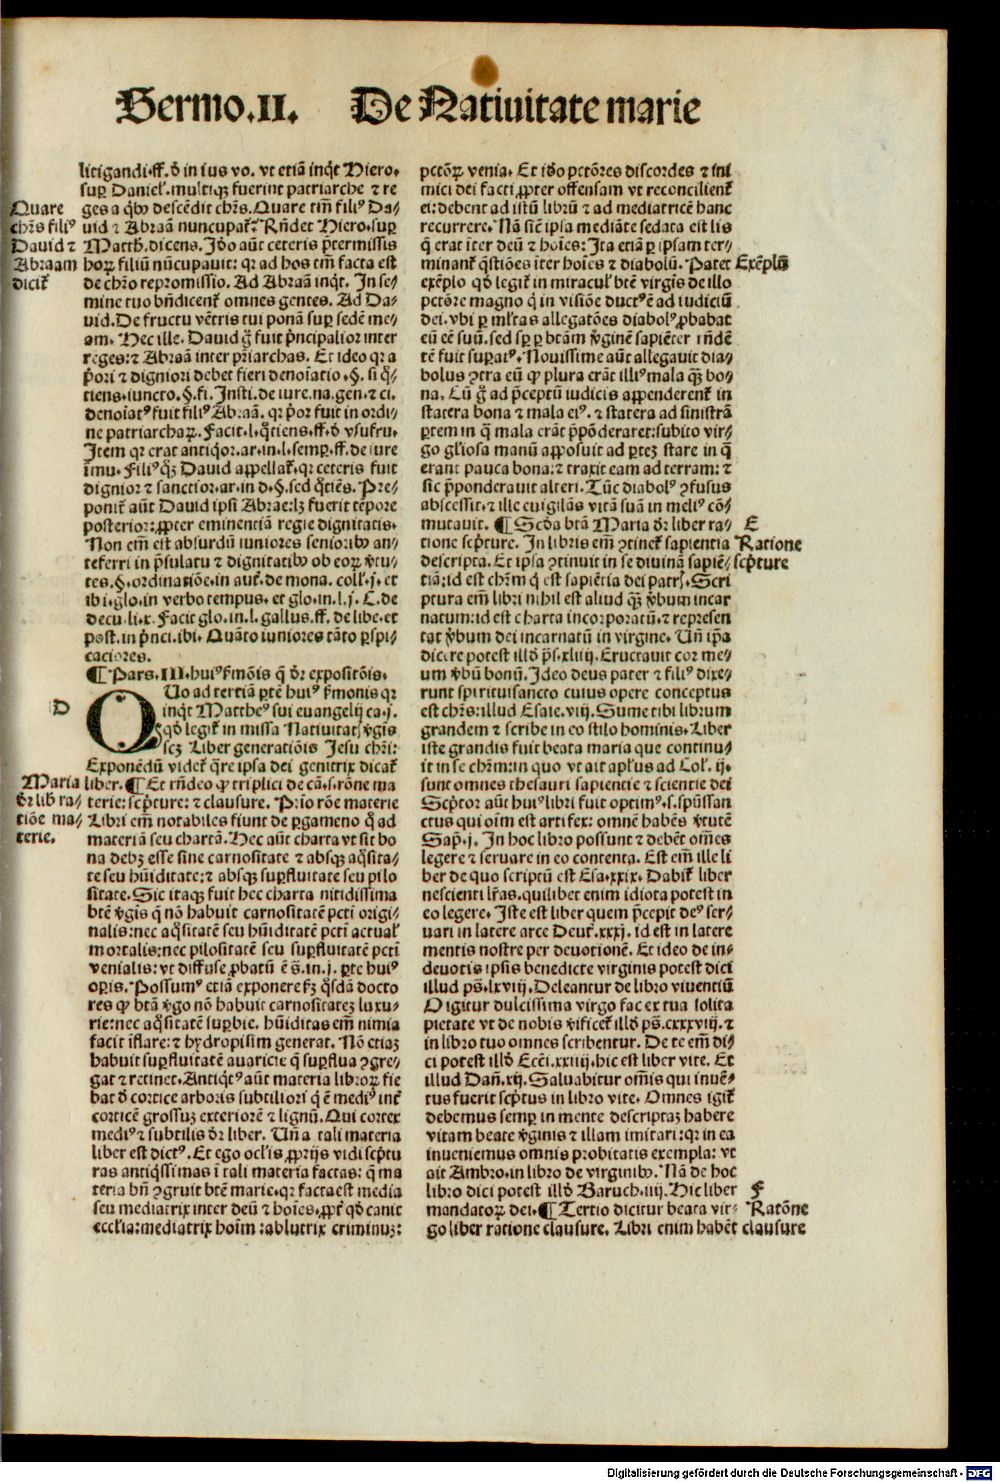 Sermo.II. De Natiuitate marie
litigandi.ff. ð in ius vo. vt etiã inqͥt Hiero.
suꝑ Daniel̕.multiqꝫ fuerint patriarche ⁊ re
ges a qͥbꝰ descẽdit chr̃s.Quare tm̃ filiꝰ Da⸗
uid ⁊ Abraã nuncupat̃? Rñdet Hiero.suꝑ
Matth.dicens. Jdo aũt ceteris p̃termissis
hoꝝ filiũ nũcupauit: qꝛ ad hos tm̃ facta est
de chro repromissio. Ad Abraã inqͥt. In se⸗
mine tuo bñdicent̃ omnes gentes. Ad Da⸗
uid.De fructu vẽtris tui ponã suꝑ sedẽ me⸗
am. Hec ille. Dauid g̃ fuit p̃ncipalior inter
reges:⁊ Abraã inter pr̃iarchas. Et ideo qꝛ a
p̃ori ⁊ digniori debet fieri denoĩatio.§. si q̃⸗
tiens.iuncto.§.fi. Insti. de iure.na.gen.⁊ ci.
denoĩatꝰ fuit filiꝰ Abraã. qꝛ p̃or fuit in ordi⸗
ne patriarchaꝝ. Facit.l.q̃tiens.ff.ð vsufru.
Item qꝛ erat antiqͥor.ar.in.l.semꝑ.ff.de iure
ĩmu. Filiꝰqꝫ Dauid appellat̃.qꝛ ceteris fuit
dignior ⁊ sanctior.ar.in d.§.sed q̃tiẽs. Pre⸗
ponit̃ aũt Dauid ipsi Abrae:lꝫ fuerit tẽpore
posterior:ꝓpter eminentiã regie dignitatis.
Non em̃ est absurdũ iuniores senioribꝰ an⸗
teferri in p̃sulatu ⁊ dignitatibꝰ ob eoꝝ v̓tu⸗
tes.§.ordinatiõe.in aut̃.de mona. coll̕.j. et
ibi.glo.in verbo tempus. et glo.in.l.j. C.de
decu.li.x. Facit glo.in.l. gallus.ff. de libe.et
post.in p̃nci.ibi. Quãto iuniores tãto ꝑspi⸗
caciores.
¶ Pars.III.huiꝰ s̃mõis q̃ dr̃ expositõis.
QUo ad tertiã ꝑtẽ huiꝰ s̃monis qꝛ
inqͥt Mattheꝰ sui euangelij ca.j.
qd̓ legit̃ in missa Natiuitat̕ v̓gis
scꝫ Liber generatiõis Jesu chr̃i:
Exponẽdũ videt̃ q̃re ipsa dei genitrix dicat̃
liber.¶ Et rñdeo ꝙ triplici de cã.s.rõne ma
terie: scp̃ture: ⁊ clausure. Prio rõe materie
Libri em̃ notabiles fiunt de ꝑgameno q̃ ad
materiã seu chartã. Hec aũt charta vt sit bo
na debꝫ esse sine carnositate ⁊ absqꝫ aq̃sita⸗
te seu hũiditate:⁊ absqꝫ suꝑfluitate seu pilo
sitate. Sic itaqꝫ fuit hec charta nitidissima
btẽ v̓gis q̃ nõ habuit carnositatẽ pcti origi⸗
nalis:nec aq̃sitatẽ seu hũiditatẽ pcti̓ actual̕
mortalis:nec pilositatẽ seu suꝑfluitatẽ pcti̓
venialis: vt diffuse ꝓbatũ ẽ s̃.in.j. ꝑte huiꝰ
oꝑis. Possumꝰ etiã exponere sꝫ q̃sdã docto
res ꝙ btã v̓go nõ habuit carnositateꝫ luxu⸗
rie:nec aq̃sitatẽ suꝑbie. hũiditas em̃ nimia
facit ĩflare: ⁊ hydropisim generat. Nõ etiaꝫ
habuit suꝑfluitatẽ auaricie q̃ suꝑflua ꝯgre⸗
gat ⁊ retinet.Antiqͥtꝰ aũt materia libroꝝ fie
bat ð cortice arboris subtiliori q̃ ẽ mediꝰ int̃
corticẽ grossuꝫ exteriorẽ ⁊ lignũ. Qui cortex
mediꝰ ⁊ subtilis dr̃ liber. Uñ a tali materia
liber est dictꝰ. Et ego ocl̕is ꝓprijs vidi scp̃tu
ras antiqͥssimas ĩ tali materia factas: q̃ ma
teria bñ ꝯgruit btẽ marie.qꝛ facta est media
seu mediatrix inter deũ ⁊ hoĩes.ꝓpt̃ qd̓ canit
eccl̕ia:mediatrix hoĩm: ablutrix criminuꝫ:
Quare
chr̃s filiꝰ
Dauid ⁊
Abraam
dicit̃
D
Maria
dr̃ lib̕ ra⸗
tiõe ma⸗
terie.
pctõꝝ venia. Et idõ pctõres discordes ⁊ ini
mici dei facti ꝓpter offensam vt reconcilient̃
ei: debent ad istũ librũ ⁊ ad mediatricẽ hanc
recurrere. Nã sic̃ ipsa mediãte sedata est lis
q̃ erat ĩter deũ ⁊ hoĩes: Ita etiã ꝑ ipsam ter⸗
minant̃ q̃stiões ĩter hoĩes ⁊ diabolũ. Patet
exẽplo qd̓ legit̃ in miracul̕ btẽ virgis de illo
pctõre magno q̓ in visiõe ductꝰ ẽ ad iudiciũ
dei. vbi ꝑ ml̕tas allegatões diabolꝰ ꝓbabat
eũ eẽ suũ. sed sꝑ ꝑ btãm v̓ginẽ sapiẽter rñdẽ
tẽ fuit suꝑatꝰ. Nouissime aũt allegauit dia⸗
bolus ꝯtra eũ ꝙ plura erãt illiꝰ mala q̃ꝫ bo⸗
na. Cũ g̃ ad p̃ceptũ iudicis appenderent̃ in
statera bona ⁊ mala eiꝰ. ⁊ statera ad sinistrã
ꝑtem in q̃ mala erãt p̃põderaret: subito vir⸗
go gl̕iosa manũ apposuit ad ꝑteꝫ stare in q̃
erant pauca bona: ⁊ traxit eam ad terram: ⁊
sic p̃ponderauit alteri. Tũc diabolꝰ ꝯfusus
abscessit. ⁊ ille euigilãs vitã suã in meliꝰ cõ⸗
mutauit. ¶ Scd̓a btã Maria dr̃ liber ra⸗
tione scp̃ture. In libris em̃ ꝯtinet̃ sapientia
descripta. Et ipsa ꝯtinuit in se diuinã sapiẽ⸗
tiã: id est chr̃m q̓ est sapiẽtia dei patr̕. Scri
ptura em̃ libri nihil est aliud q̃ꝫ v̓bum incar
natum: id est charta incorporatũ: ⁊ represen
tat v̓bum dei incarnatũ in virgine. Uñ ip̃a
dicere potest illd̓ pS.xliiij. Eructauit cor me⸗
um v̓bũ bonũ. Ideo deus pater ⁊ filiꝰ dixe⸗
runt spirituisancto cuius opere conceptus
est chr̃s: illud Esaie.viij. Sume tibi librum
grandem ⁊ scribe in eo stilo hominis. Liber
iste grandis fuit beata maria que continu⸗
it in se chr̃m: in quo vt ait apl̕us ad Col̕.ij.
sunt omnes thesauri sapientie ⁊ scientie dei
Scp̃tor aũt huiꝰ libri fuit optimꝰ.s.spũssan
ctus qui oĩm est artifex: omnẽ habẽs v̓tutẽ
Sap̃.j. In hoc libro possunt ⁊ debẽt oẽs
legere ⁊ seruare in eo contenta. Est em̃ ille li
ber de quo scriptũ est Esa.xxix. Dabit̃ liber
nescienti l̕ras.quilibet enim idiota potest in
eo legere. Iste est liber quem p̃cepit deꝰ ser⸗
uari in latere arce Deut̃.xxxj. id est in latere
mentis nostre per deuotionẽ. Et ideo de in⸗
deuotis ipsis benedicte virginis potest dici
illud pS.lxviij. Deleantur de libro viuentiũ
O igitur dulcissima virgo fac ex tua solita
pietate vt de nobis v̓ificet̃ illd̓ pS.cxxxviij. ⁊
in libro tuo omnes scribentur. De te em̃ di⸗
ci potest illd̓ Ecci̓.xxiiij.hic est liber vite. Et
illud Dañ.xij. Saluabitur om̃is qui inuẽ⸗
tus fuerit scp̃tus in libro vite. Omnes igit̃
debemus semꝑ in mente descriptaꝫ habere
vitam beate v̓ginis ⁊ illam imitari: qꝛ in ea
inueniemus omnis probitatis exempla: vt
ait Ambro.in libro de virginibꝰ. Nã de hoc
libro dici potest illd̓ Baruch.iiij. Hic liber
mandatoꝝ dei.¶ Tertio dicitur beata vir⸗
go liber ratione clausure. Libri enim habẽt
Exẽplũ
E
Ratione
scp̃ture
F
Ratõne
clausure
Digitalisierung gefördert durch die Deutsche Forschungsgemeinschaft - DFG